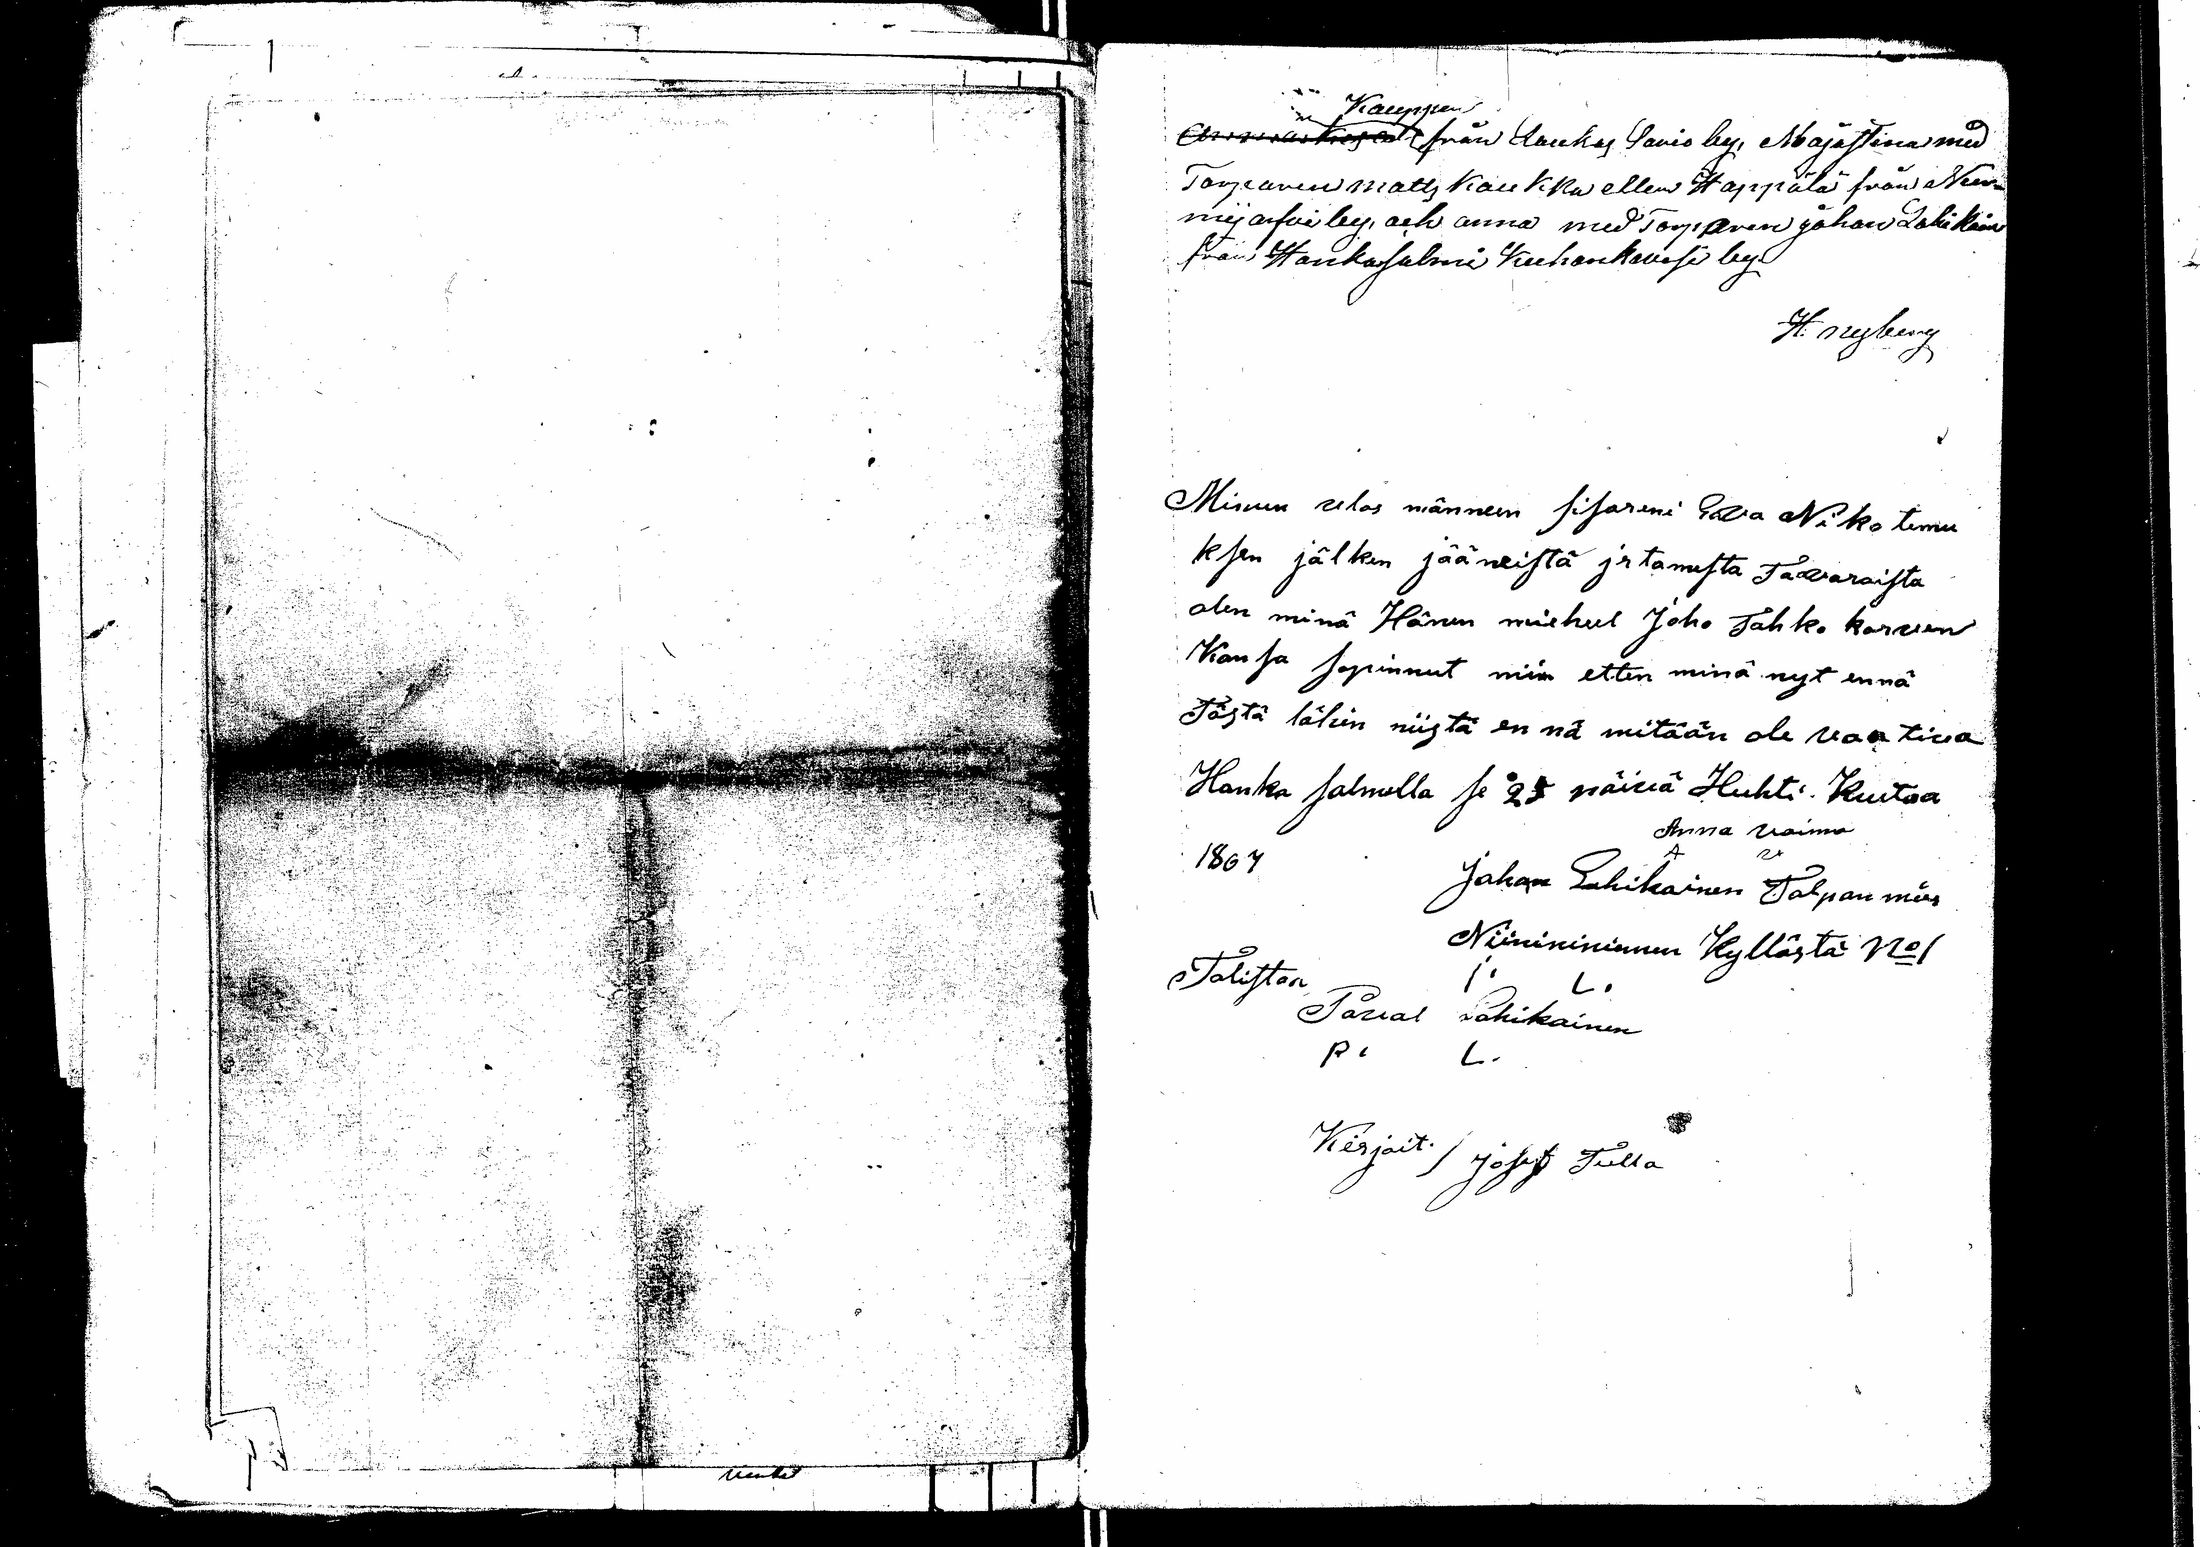 Kauppen
från Laukas Savio by, Majastina med
Torparen matts Kaukka eller Happälä från Nur-
mijärfvi by, och anna med Torparen johan Lahikain
från Hankasalmi Kuhankavesi by
H. nyberg
Minun ulos männeen sisareni Eeva Niko temu
ksen jälken jääneistä jrtamesta Tavaroista
olen minä Hänen miehul Joho Tahko korven
Kansa sopinnut niin etten minä nyt ennä
Tästä lähin niistä en nä mitään ole vaa tiva
Hanka salmella se 25 päivä Huhti. Kuutaa
Anna vaimo
1867
A v
Johan Lahikainen Talpan mies
Niininiemen Kyllästä No 1
Talistan
J. L.
Paval Lahikainen
P. L.
Kirjoit. / Josef Tulla